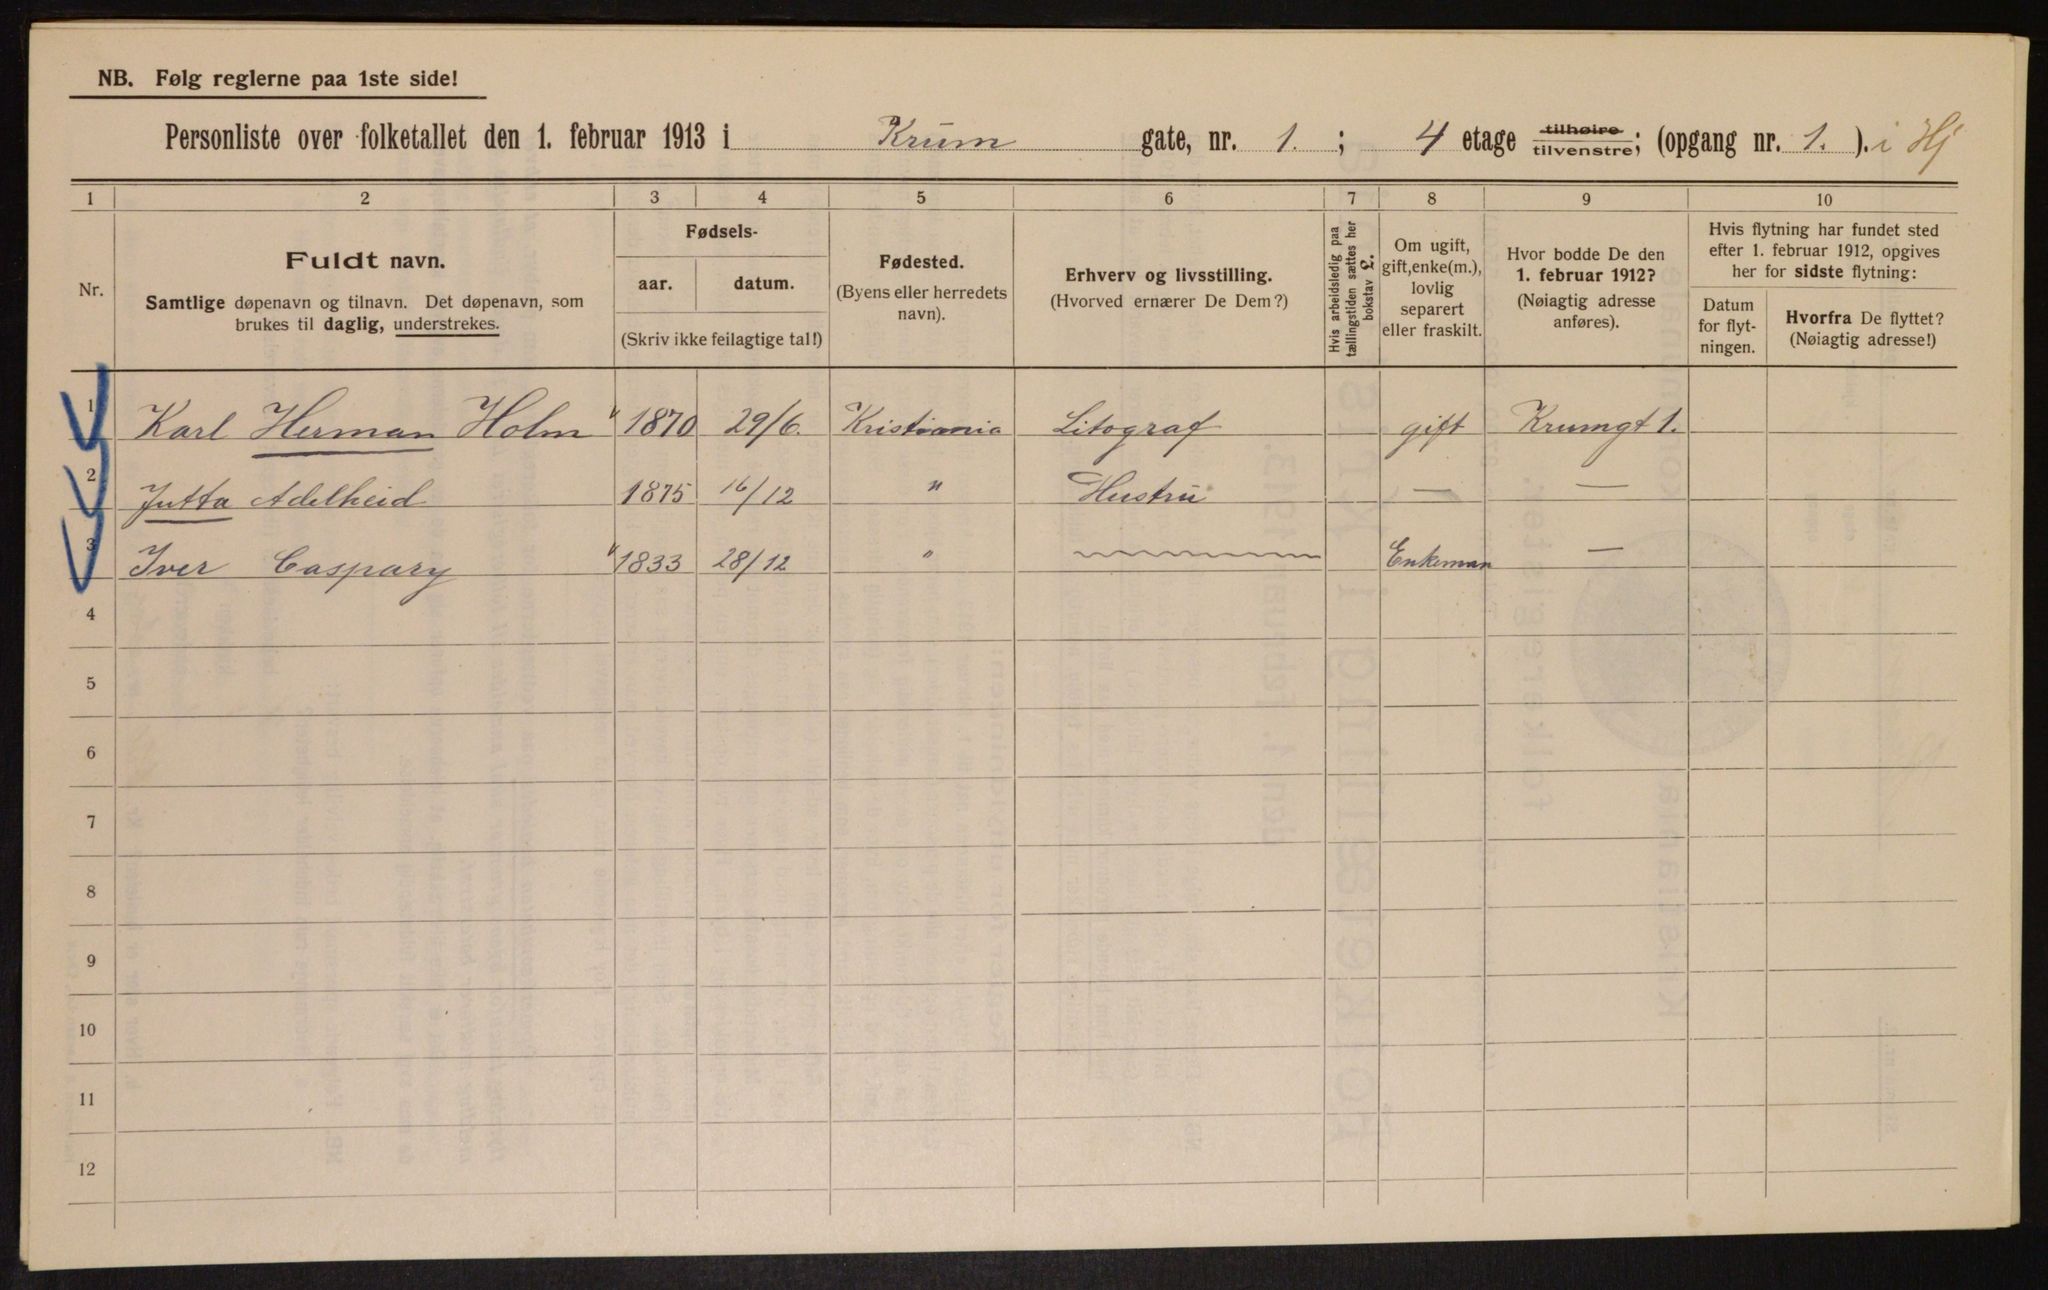 NB. Følg reglerne paa 1ste side!
Personliste over folketallet den 1. februar 1913 i Krum gate, nr. 1. ; 4 etage tilhøire tilvenstre; (opgang nr. 1. ). i Hj
1 2 3 4 5 6 7 8 9 10
Nr.
Fuldt navn.
Samtlige døpenavn og tilnavn. Det døpenavn, som
brukes til daglig, understrekes.
Fødsels-
aar. datum.
(Skriv ikke feilagtige tal!)
Fødested.
(Byens eller herredets
navn).
Erhverv og livsstilling.
(Hvorved ernærer De Dem?)
Hvis arbeidsledig paa
tællingstiden sættes her
bokstav L.
Om ugift,
gift, enke(m.),
lovlig
separert
eller fraskilt.
Hvor bodde De den
1. februar 1912?
(Nøiagtig adresse
anføres).
Hvis flytning har fundet sted
efter 1. februar 1912, opgives
her for sidste flytning:
Datum
for flyt-
ningen.
Hvorfra De flyttet?
(Nøiagtig adresse!)
1 Karl Herman Holm 1870 29/6. Kristiania Litograf gift Krumgt 1.
2 Jutta Adelheid 1875 16/12 " Hustru — —
3 Iver Caspary 1833 28/12 " Enkeman —
4
5
6
7
8
9
10
11
12